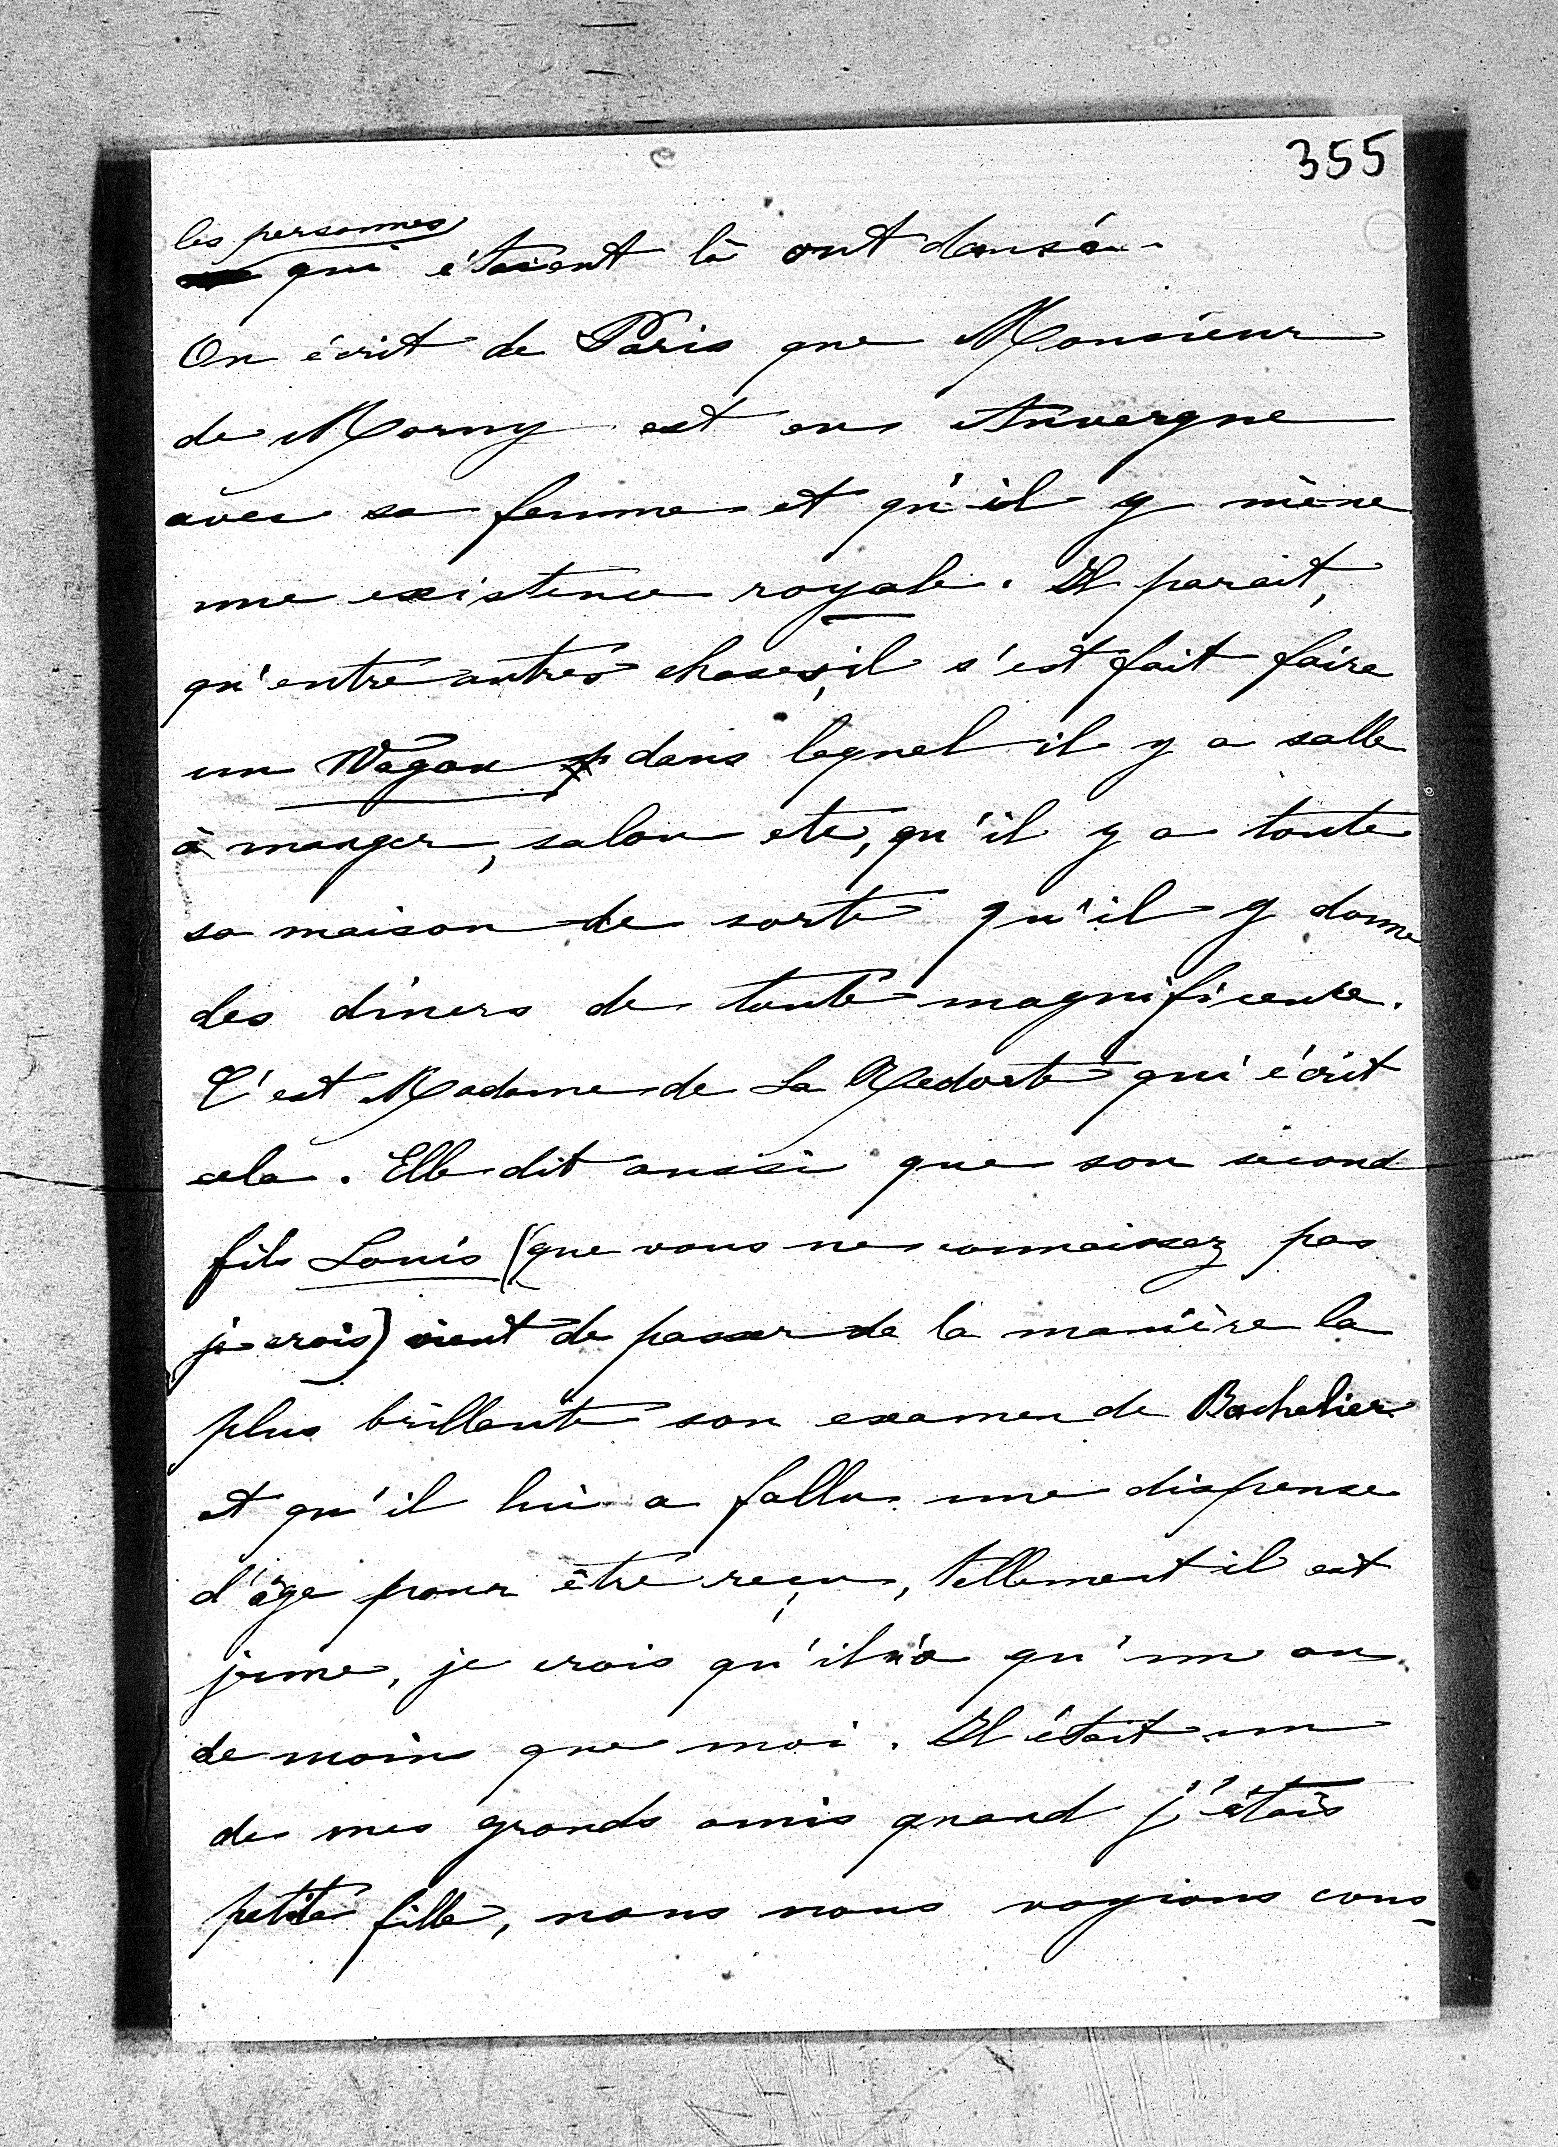 355
les personnes
qui étaient là ont dansé.
On écrit de Paris que Monsieur
de Morny est en Auvergne
avec sa femme et qu'il y mène
une existence royale. Il parait,
qu'entre autres choses, il s'est fait faire
un Wagon dans lequel il y a salle
à manger, salon etc, qu'il y a toute
sa maison de sorte qu'il y donne
des diners de toute magnificence.
C'est Madame de La Redorte qui écrit
cela. Elle dit aussi que son second
fils Louis (que vous ne connaissez pas
je crois) vient de passer de la manière la
plus brillante son examen de Bachelier
et qu'il lui a fallu une dispense
d'âge pour être reçu, tellement il est
jeune, je crois qu'il n'a qu'un an
de moins que moi. Il était un
de mes grands amis quand j'étais
petite fille, nous nous voyions cons-